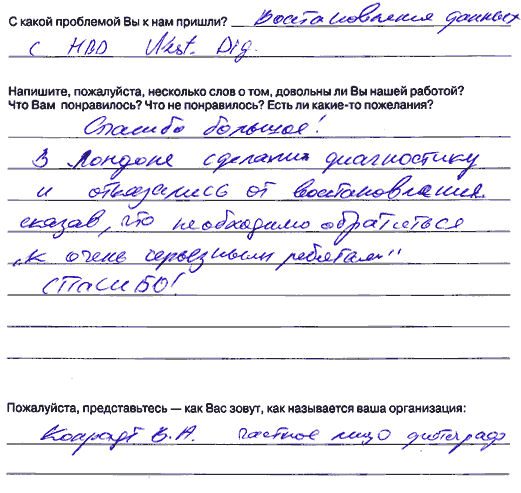 С какой проблемой Вы к нам пришли? Восстановления данных
с HDD West. Dig.
Напишите, пожалуйста, несколько слов о том, довольны ли Вы нашей работой?
Что Вам понравилось? Что не понравилось? Есть ли какие-то пожелания?
Спасибо большое!
В Лондоне сделали диагностику
и отказались от восстановления
сказав, что необходимо обратиться
„к очень серьезным ребятам"
СПАСИБО!
Пожалуйста, представьтесь — как Вас зовут, как называется ваша организация:
В.А. частное лицо фотограф